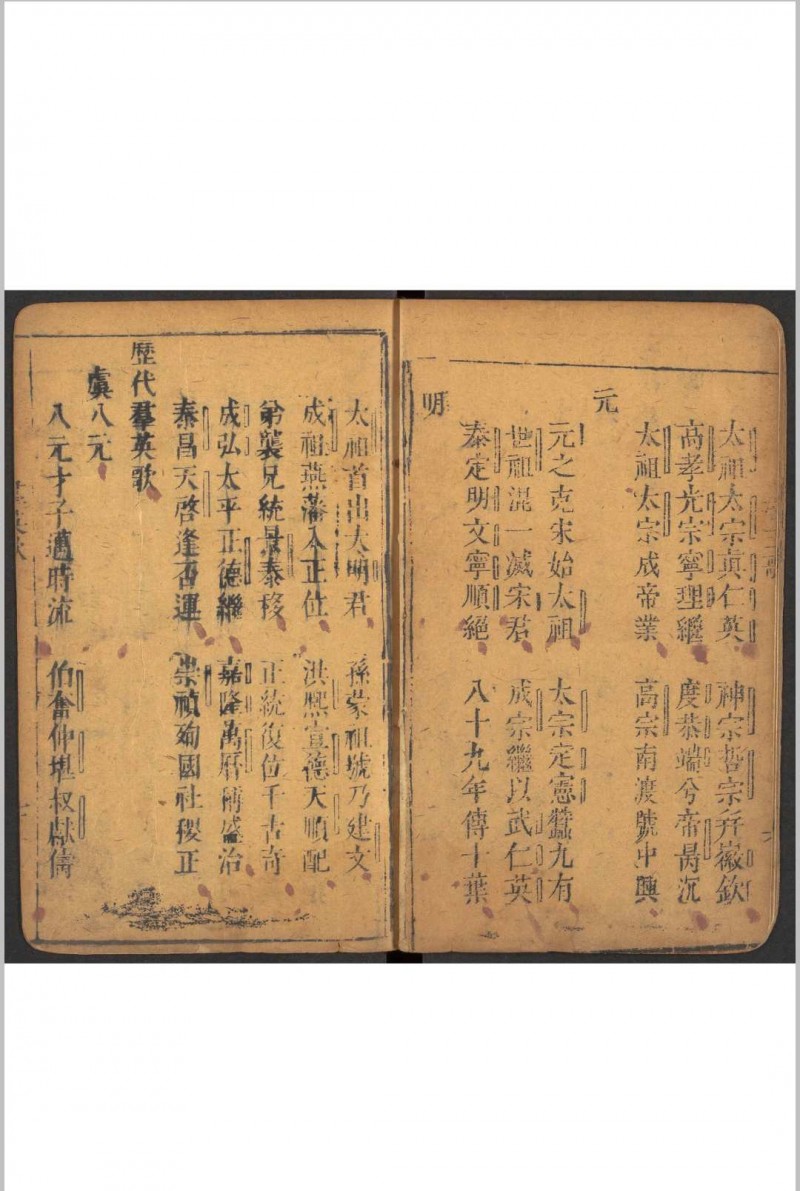 太祖太宗真仁英　神宗哲宗幷徽欽
高孝光宗寧理繼　度恭端兮帝昺沉
太祖太宗成帝業　高宗南渡號中興
元
元之克宋始太祖　太宗定憲蠶九有
世祖混一滅宋君　成宗繼以武仁英
泰定明文寧順絕　八十九年傳十葉
明
太祖首出大明君　孫蒙祖號乃建文
成祖燕藩入正位　洪熙宣德天順配
弟襲兄統景泰移　正統復位千古奇
成弘太平正德繼　嘉隆萬曆稱盛治
泰昌天啓逢否運　崇禎殉國社稷正
歷代羣英歌
虞八元
八元才子邁時流　伯奮仲堪叔獻儔